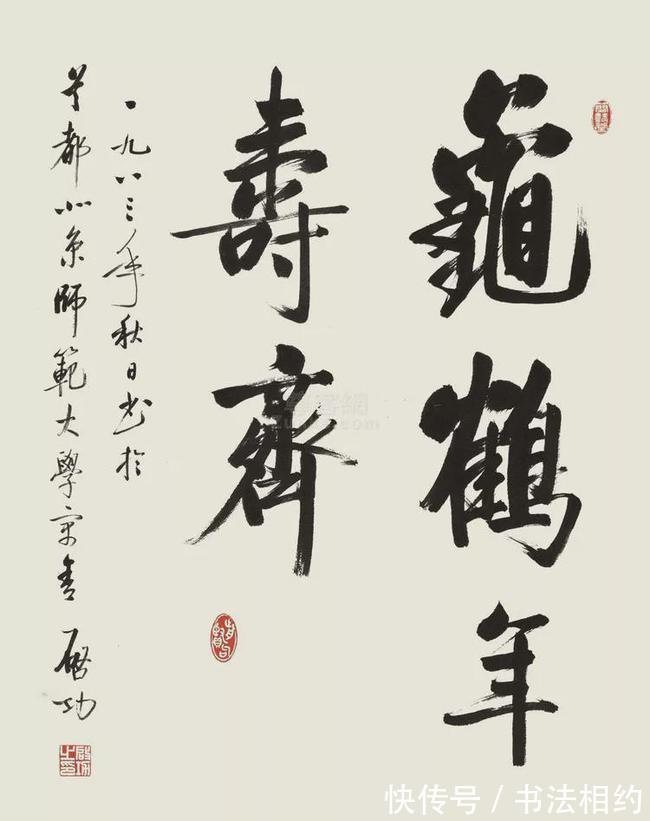 龜鶴年
壽齊
一九八三年秋日书於
首都北京師範大學宿舍 启功
快传号 / 书法相约